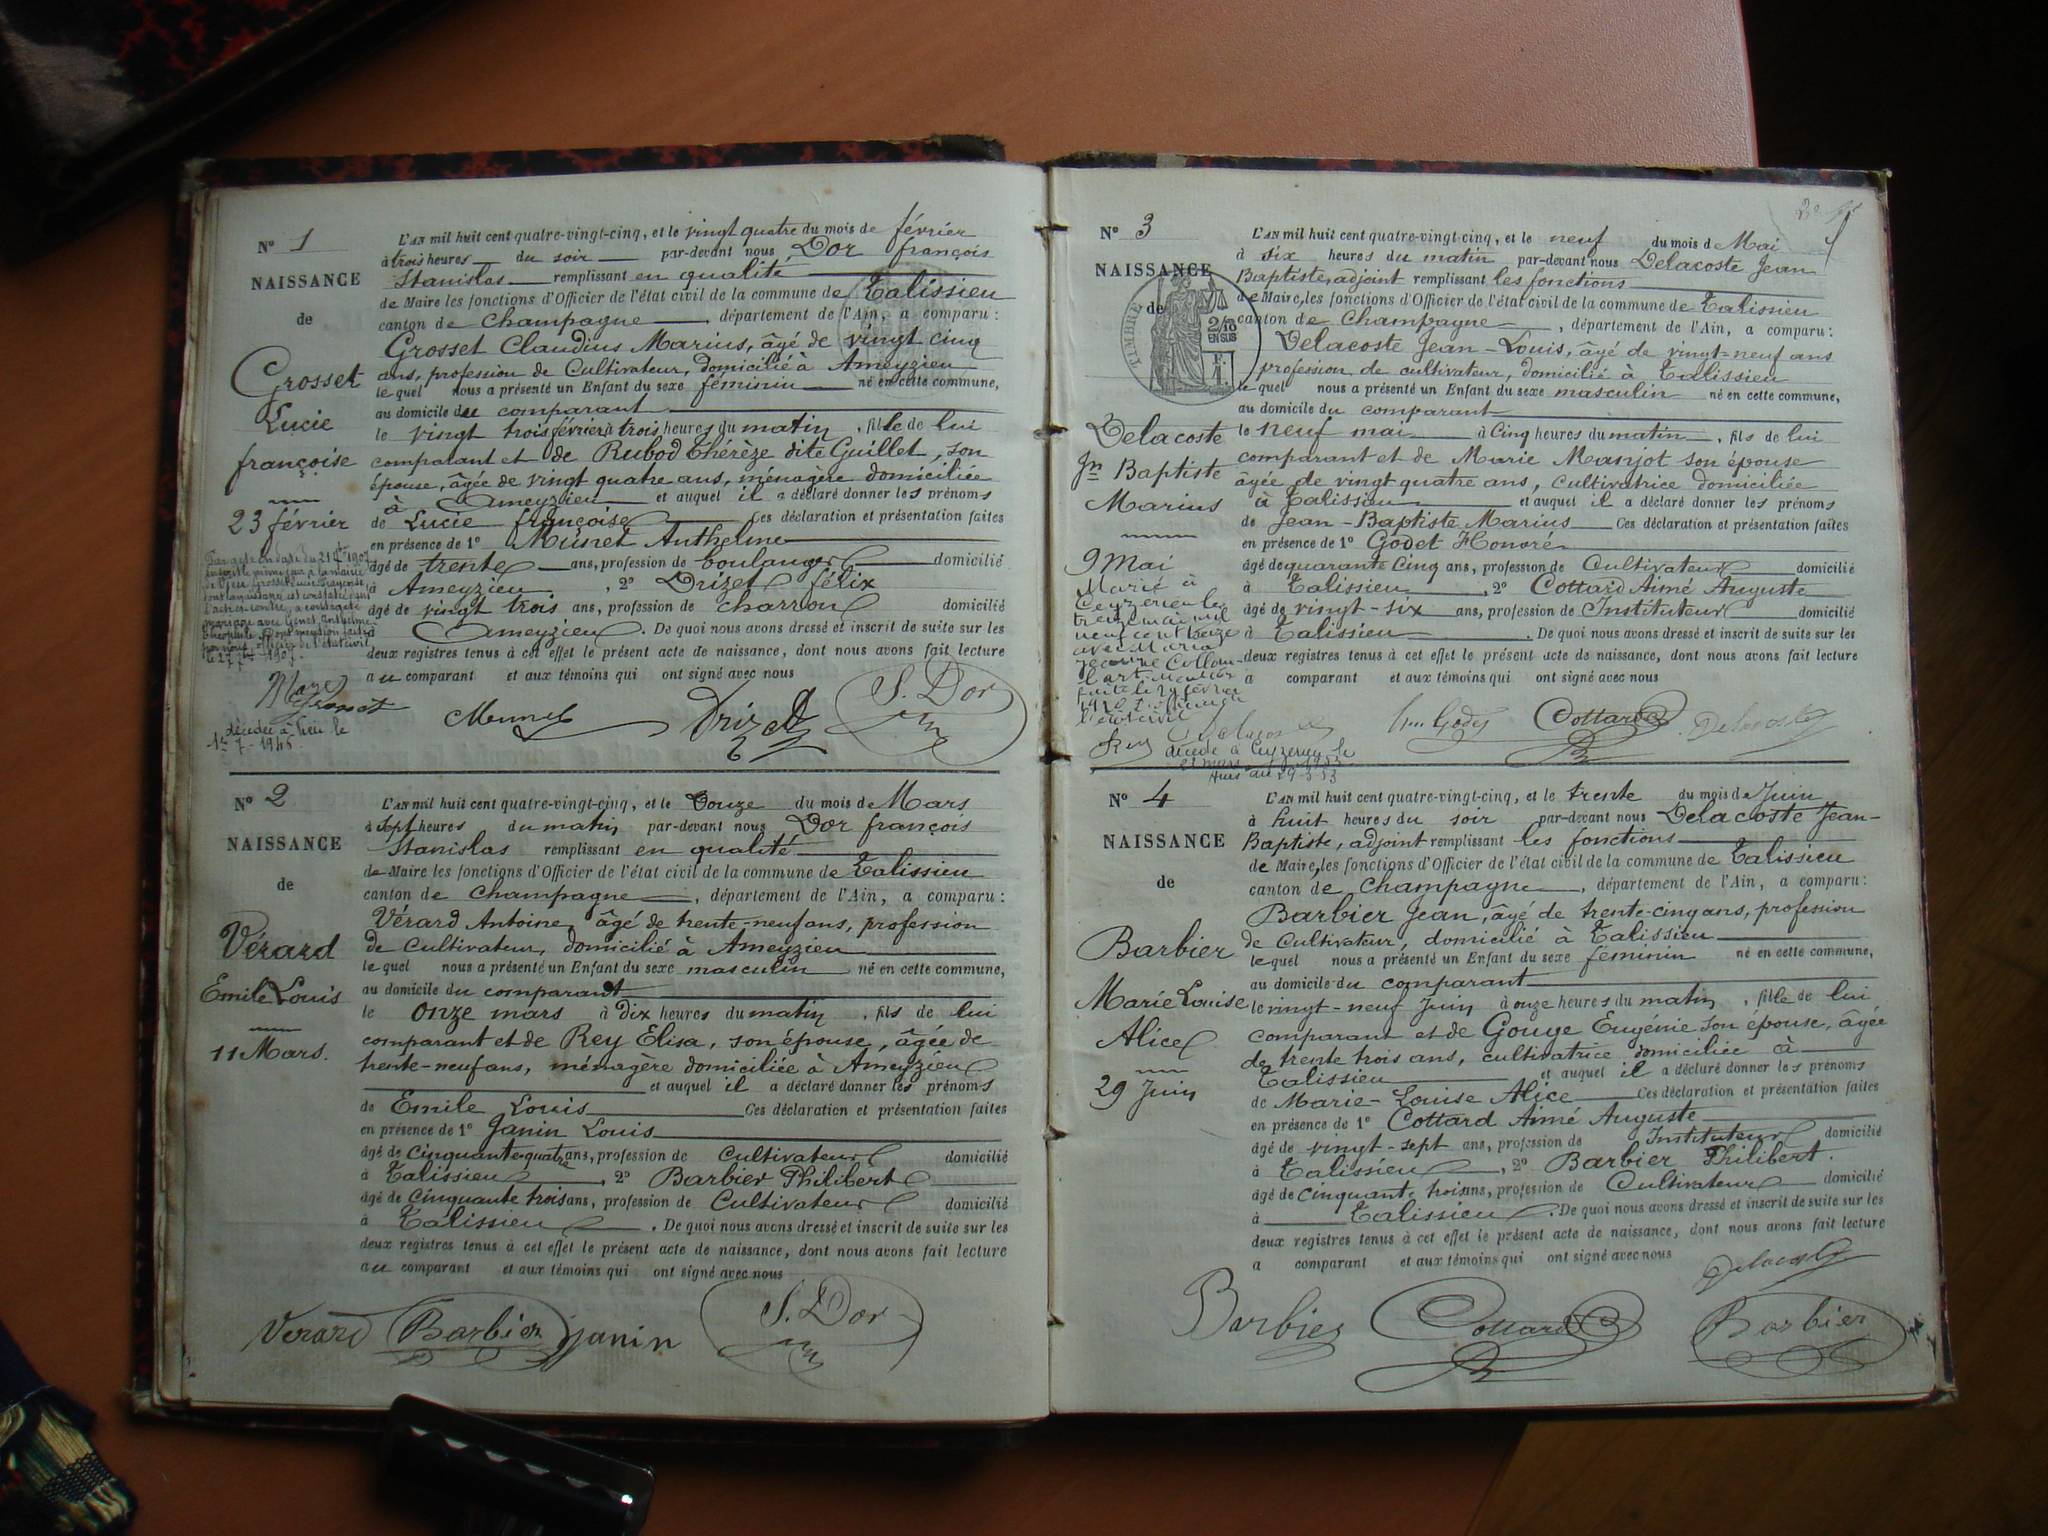 N° 1
NAISSANCE
de
Grosset
Lucie
françoise
23 février
décédée à Vieu le
1er 7 - 1945
L'AN mil huit cent quatre-vingt-cinq, et le vingt quatre du mois de février
à trois heures du soir par-devant nous Dor françois
Stanislas remplissant en qualité
de Maire les fonctions d'Officier de l'état civil de la commune de Talissieu
canton de Champagne, département de l'Ain, a comparu :
Grosset Claudius Marius, âgé de vingt cinq
ans, profession de Cultivateur, domicilié à Ameyzieu
le quel nous a présenté un Enfant du sexe féminin né en cette commune,
au domicile du comparant
le vingt trois février à trois heures du matin, fille de lui
comparant et de Rubod Thérèze dite Guillet, son
épouse, âgée de vingt quatre ans, ménagère domiciliée
à Ameyzieu et auquel il a déclaré donner les prénoms
de Lucie françoise Ces déclaration et présentation faites
en présence de 1° Munet Anthelme
âgé de trente ans, profession de boulanger domicilié
à Ameyzieu, 2° Drizet félix
âgé de vingt trois ans, profession de charron domicilié
Ameyzieu. De quoi nous avons dressé et inscrit de suite sur les
deux registres tenus à cet effet le présent acte de naissance, dont nous avons fait lecture
au comparant et aux témoins qui ont signé avec nous
Munet Drizet S. Dor
N° 2
NAISSANCE
de
Vérard
Emile Louis
11 Mars.
L'AN mil huit cent quatre-vingt-cinq, et le douze du mois de Mars
à sept heures du matin par-devant nous Dor françois
Stanislas remplissant en qualité
de Maire les fonctions d'Officier de l'état civil de la commune de Talissieu
canton de Champagne, département de l'Ain, a comparu :
Vérard Antoine, âgé de trente-neuf ans, profession
de Cultivateur, domicilié à Ameyzieu
le quel nous a présenté un Enfant du sexe masculin né en cette commune,
au domicile du comparant
le onze mars à dix heures du matin, fils de lui
comparant et de Rey Elisa, son épouse, âgée de
trente-neuf ans, ménagère domiciliée à Ameyzieu
et auquel il a déclaré donner les prénoms
de Emile Louis Ces déclaration et présentation faites
en présence de 1° Janin Louis
âgé de cinquante-quatre ans, profession de Cultivateur domicilié
à Talissieu, 2° Barbier Philibert
âgé de cinquante trois ans, profession de Cultivateur domicilié
à Talissieu. De quoi nous avons dressé et inscrit de suite sur les
deux registres tenus à cet effet le présent acte de naissance, dont nous avons fait lecture
au comparant et aux témoins qui ont signé avec nous
Verard Barbier janin S. Dor
N° 3
NAISSANCE
de
TIMBRE
2/10
EN SUS
Delacoste
Jn Baptiste
Marius
9 Mai
Marié à
Ceyzerieu le
treize mai mil
neuf cent treize
avec Maria
décédé à Ceyzerieu le
L'AN mil huit cent quatre-vingt-cinq, et le neuf du mois de Mai
à six heures du matin par-devant nous Delacoste Jean
Baptiste, adjoint remplissant les fonctions
de Maire, les fonctions d'Officier de l'état civil de la commune de Talissieu
canton de Champagne, département de l'Ain, a comparu :
Delacoste Jean-Louis, âgé de vingt-neuf ans
profession de cultivateur, domicilié à Talissieu
le quel nous a présenté un Enfant du sexe masculin né en cette commune,
au domicile du comparant
le neuf mai à cinq heures du matin, fils de lui
comparant et de Marie Manjot son épouse
âgée de vingt quatre ans, cultivatrice domiciliée
à Talissieu et auquel il a déclaré donner les prénoms
de Jean-Baptiste Marius Ces déclaration et présentation faites
en présence de 1° Godet Honoré
âgé de quarante cinq ans, profession de Cultivateur domicilié
à Talissieu, 2° Cottard Aimé Auguste
âgé de vingt-six ans, profession de Instituteur domicilié
à Talissieu. De quoi nous avons dressé et inscrit de suite sur les
deux registres tenus à cet effet le présent acte de naissance, dont nous avons fait lecture
a comparant et aux témoins qui ont signé avec nous
Cottard Delacoste
N° 4
NAISSANCE
de
Barbier
Marie Louise
Alice
29 Juin
L'AN mil huit cent quatre-vingt-cinq, et le trente du mois de Juin
à huit heures du soir par-devant nous Delacoste Jean-
Baptiste, adjoint remplissant les fonctions
de Maire, les fonctions d'Officier de l'état civil de la commune de Talissieu
canton de Champagne, département de l'Ain, a comparu :
Barbier Jean, âgé de trente-cinq ans, profession
de Cultivateur, domicilié à Talissieu
le quel nous a présenté un Enfant du sexe féminin né en cette commune,
au domicile du comparant
le vingt-neuf Juin à onze heures du matin, fille de lui
comparant et de Gouge Eugénie son épouse, âgée
de trente trois ans, cultivatrice domiciliée à
Talissieu et auquel il a déclaré donner les prénoms
de Marie-Louise Alice Ces déclaration et présentation faites
en présence de 1° Cottard Aimé Auguste
âgé de vingt-sept ans, profession de Instituteur domicilié
à Talissieu, 2° Barbier Philibert.
âgé de cinquante trois ans, profession de Cultivateur domicilié
à Talissieu. De quoi nous avons dressé et inscrit de suite sur les
deux registres tenus à cet effet le présent acte de naissance, dont nous avons fait lecture
a comparant et aux témoins qui ont signé avec nous
Delacoste
Barbier Cottard Barbier